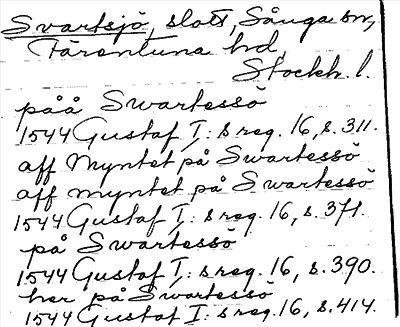 Svartsjö, slott, Sånga sn,
Färentuna hd,
Stockh. l.
påå Swartessö
1544 Gustaf I: s reg. 16, s. 311.
aff Myntet på Swartessö
aff myntet på Swartessö
1544 Gustaf I: s reg. 16, s. 371.
på Swartessö
1544 Gustaf I: s reg. 16, s. 390.
her på Swartessö
1544 Gustaf I: s reg. 16, s. 414.